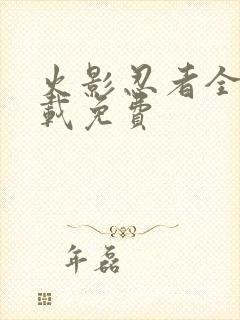 火影忍者全
載免費
年磊